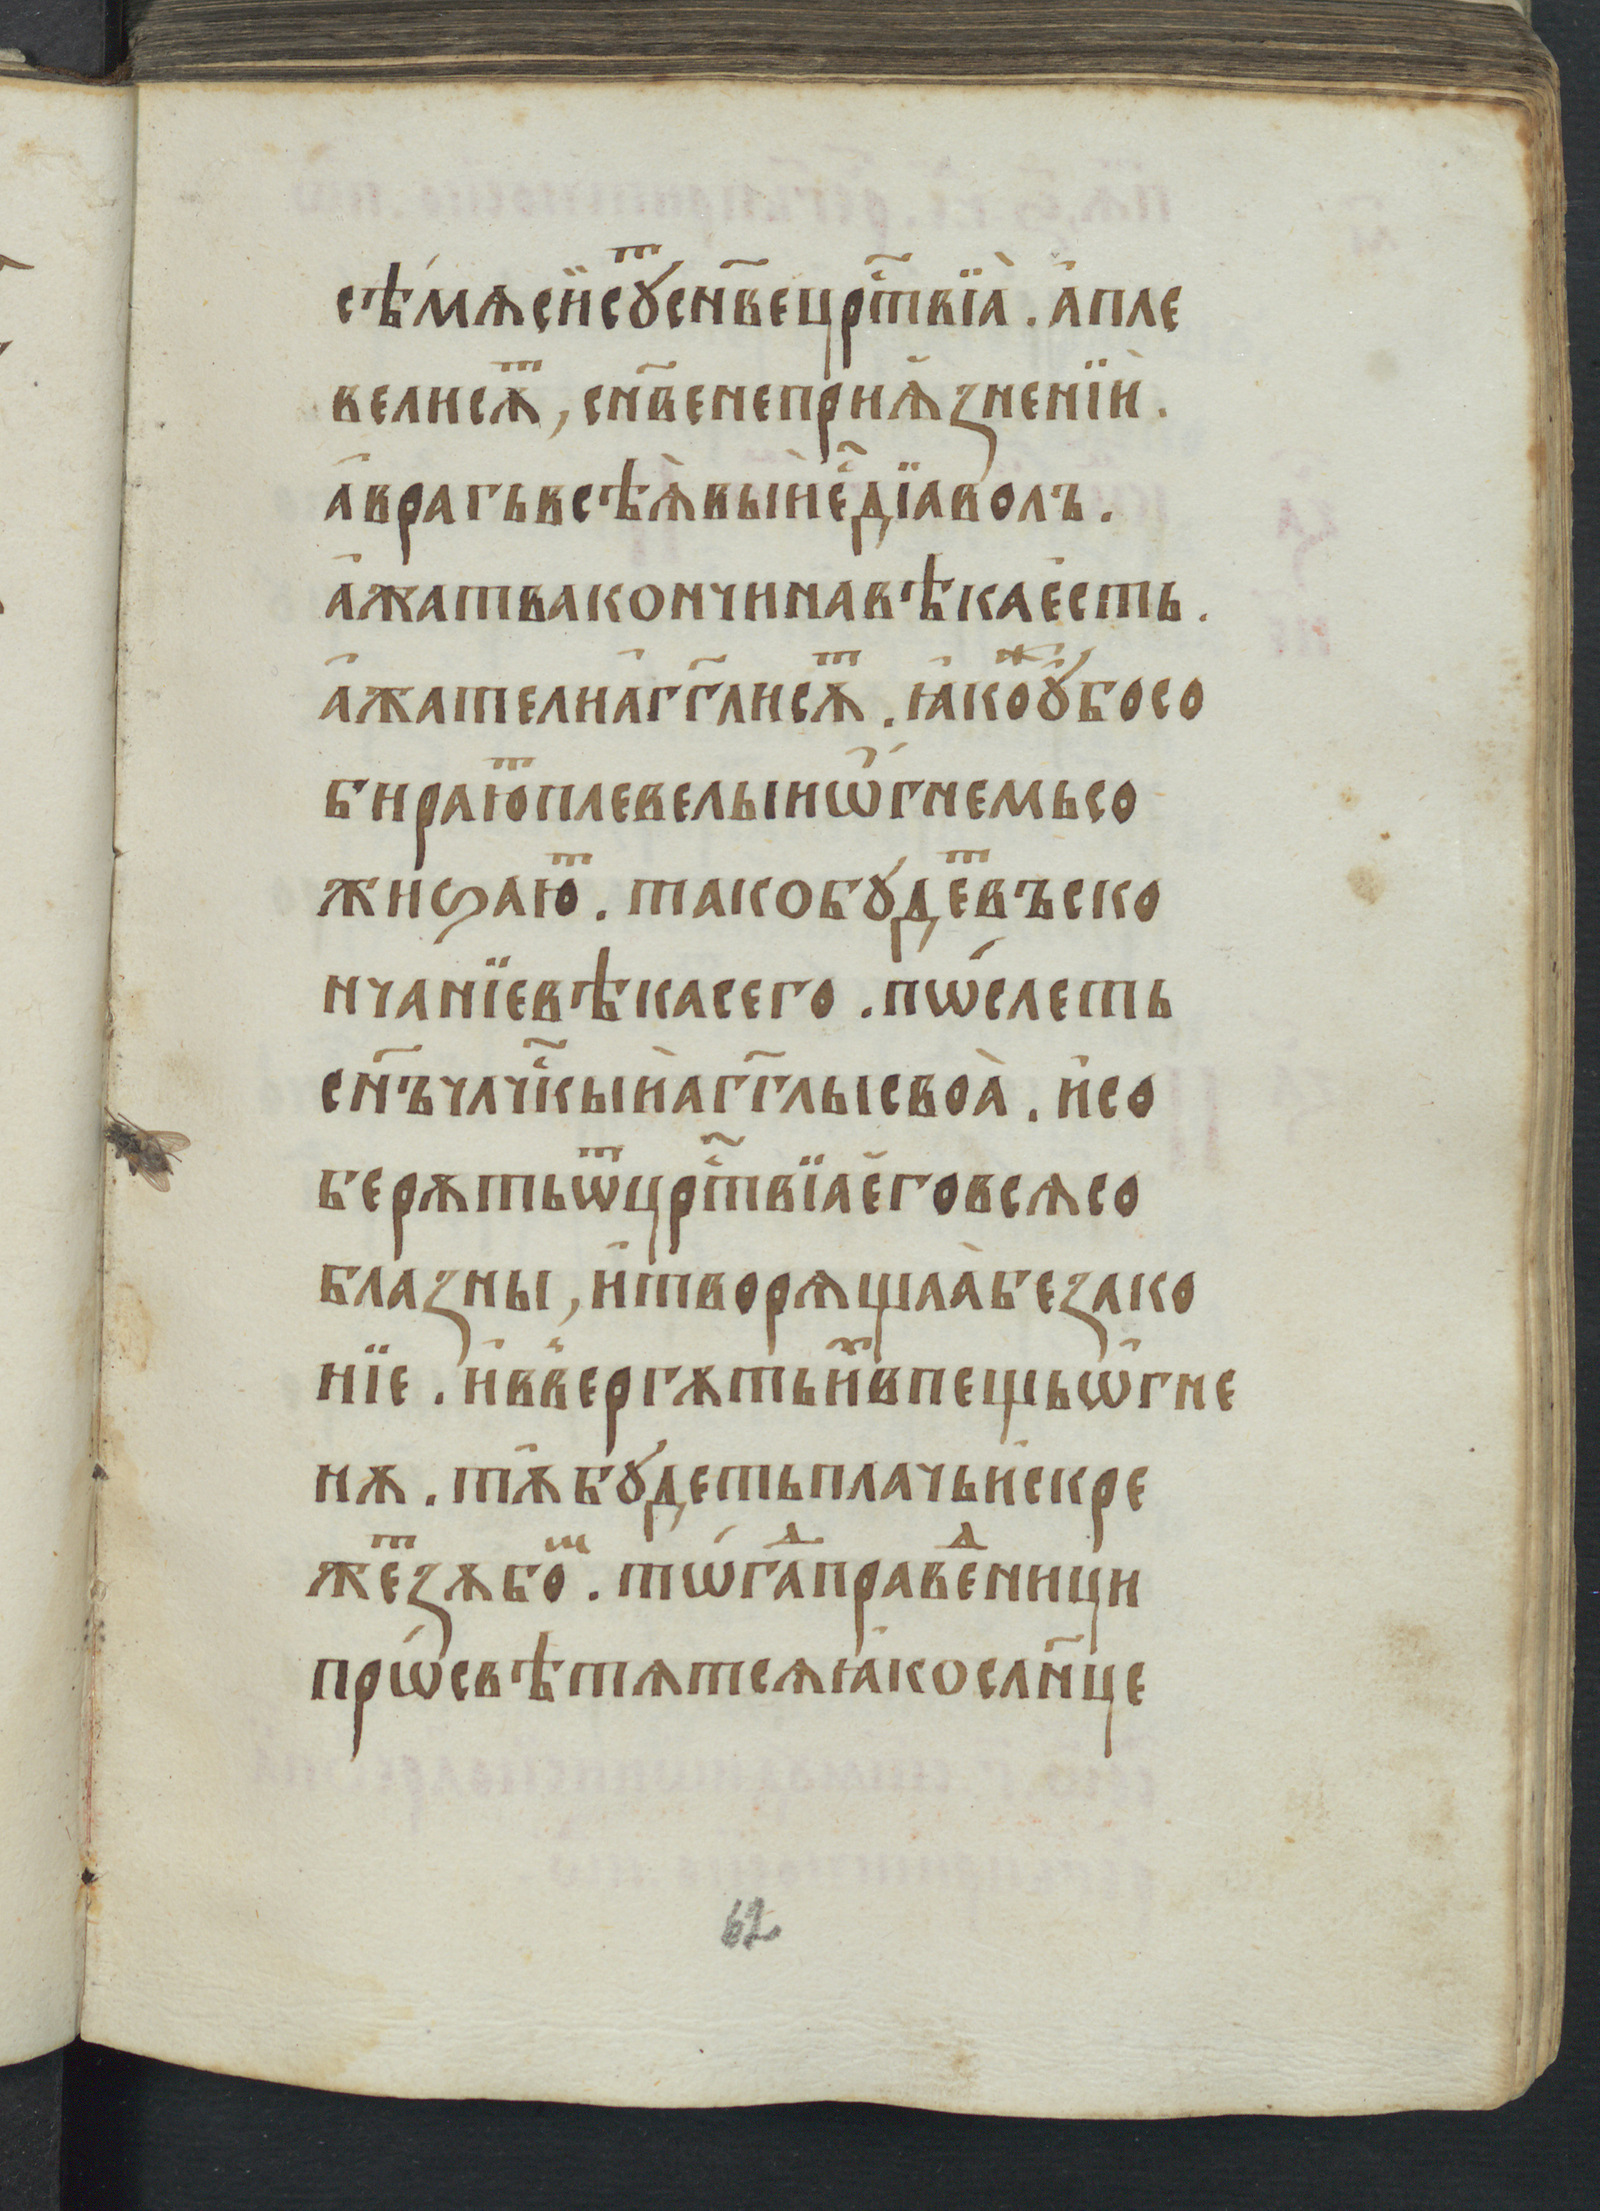 сѣ́мѧсїи́сꙋⷮсн҃вецрⷭ҇твїа̀. а҆пле
велисѫⷮ, сн҃венеприꙗ҆зненїи.
а҆врагьвсѣѧ̀выи̑е҆ⷭ҇дїаволъ.
а҆жатвакончинавѣкаесть.
а҆жателиа҆гг҃лисѫⷮ. ꙗ҆коꙋ҆ⷤбосо
бираюⷮплевелыиѡ҆́гнемьсо
жиѕаюⷮ. такобꙋ́деⷮвъско
нчанїевѣкасего. пѡ́слеть
сн҃ъчл҃чⷭ҇кыи̑а҆гг҃лысвоа̀. и҆со
берѫтьѿцрⷭ҇твїаеговсѧсо
блазны, и҆творѧщаа̀безако
нїе. и҆вве́ргѫтьиⷯ҆впещьѡ҆гне
нѫ. тѫ̑бꙋ́детьплачьи҆скре
жеⷮзѫбоⷨ. тѡ́гаⷣправеⷣници
прѡ́свѣтѧтсѧꙗ҆косл҃нце
62